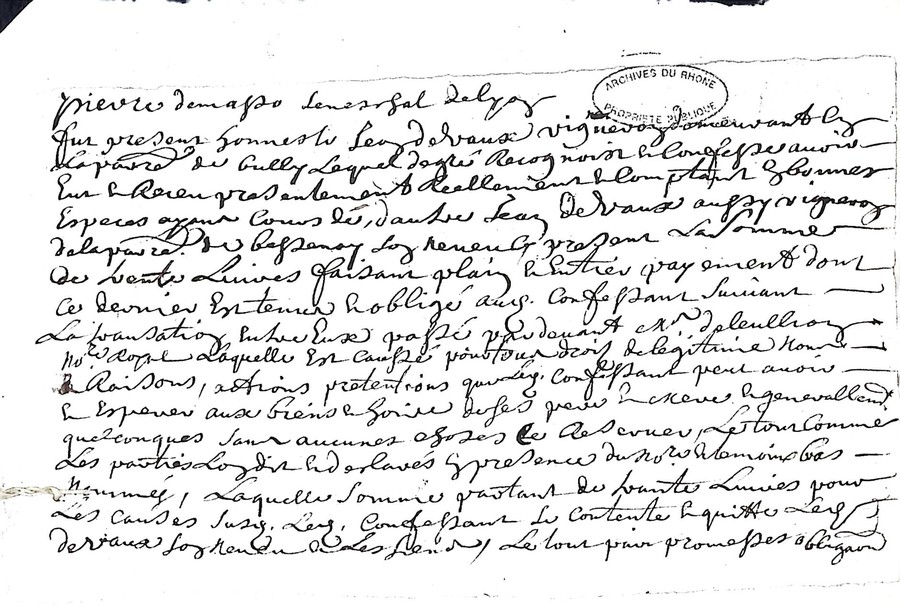 pierre demasso seneschal delyon
ARCHIVES DU RHONE
PROPRIETE PUBLIQUE
fut present honneste Jean devaux vigneron demeurant En
Laparre de bully Lequel degre Recognoist & Confesse avoir
Eut & Receu presentement Reellement & Comptant En bonnes
Especes ayant Cours de, dautre Jean devaux aussy vigneron
delaparre. de bessenay son neveu Cy present La Somme
de trente Livres faisant plain & Entier payement dont
Ce dernier Est tenu & obligé aud. Confessant suivant
La transation Entre Eux passé par devant Mr.
no.re Royal Laquelle Est Caussé pour tour droit delegitime
& Raisons, actions pretentions que Led. Confessant peut avoir
& Esperer aux biens & hoirie desès pere & mere & generallemt.
quelconques sans aucunes choses se Reserver, Le tout Comme
Les parties Lon dit & declarés En presence du no.re & temoins bas
Nommés, Laquelle somme partant de trante Livres pour
Les Causes susd. Led. Confessant se Contente & quitte Led.
devaux son neveu & Les siens, Le tout par promesses obligaon